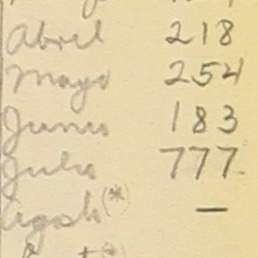 Abril 218
Mayo 254
Junio 183
Julio 777
Agosto (*) —